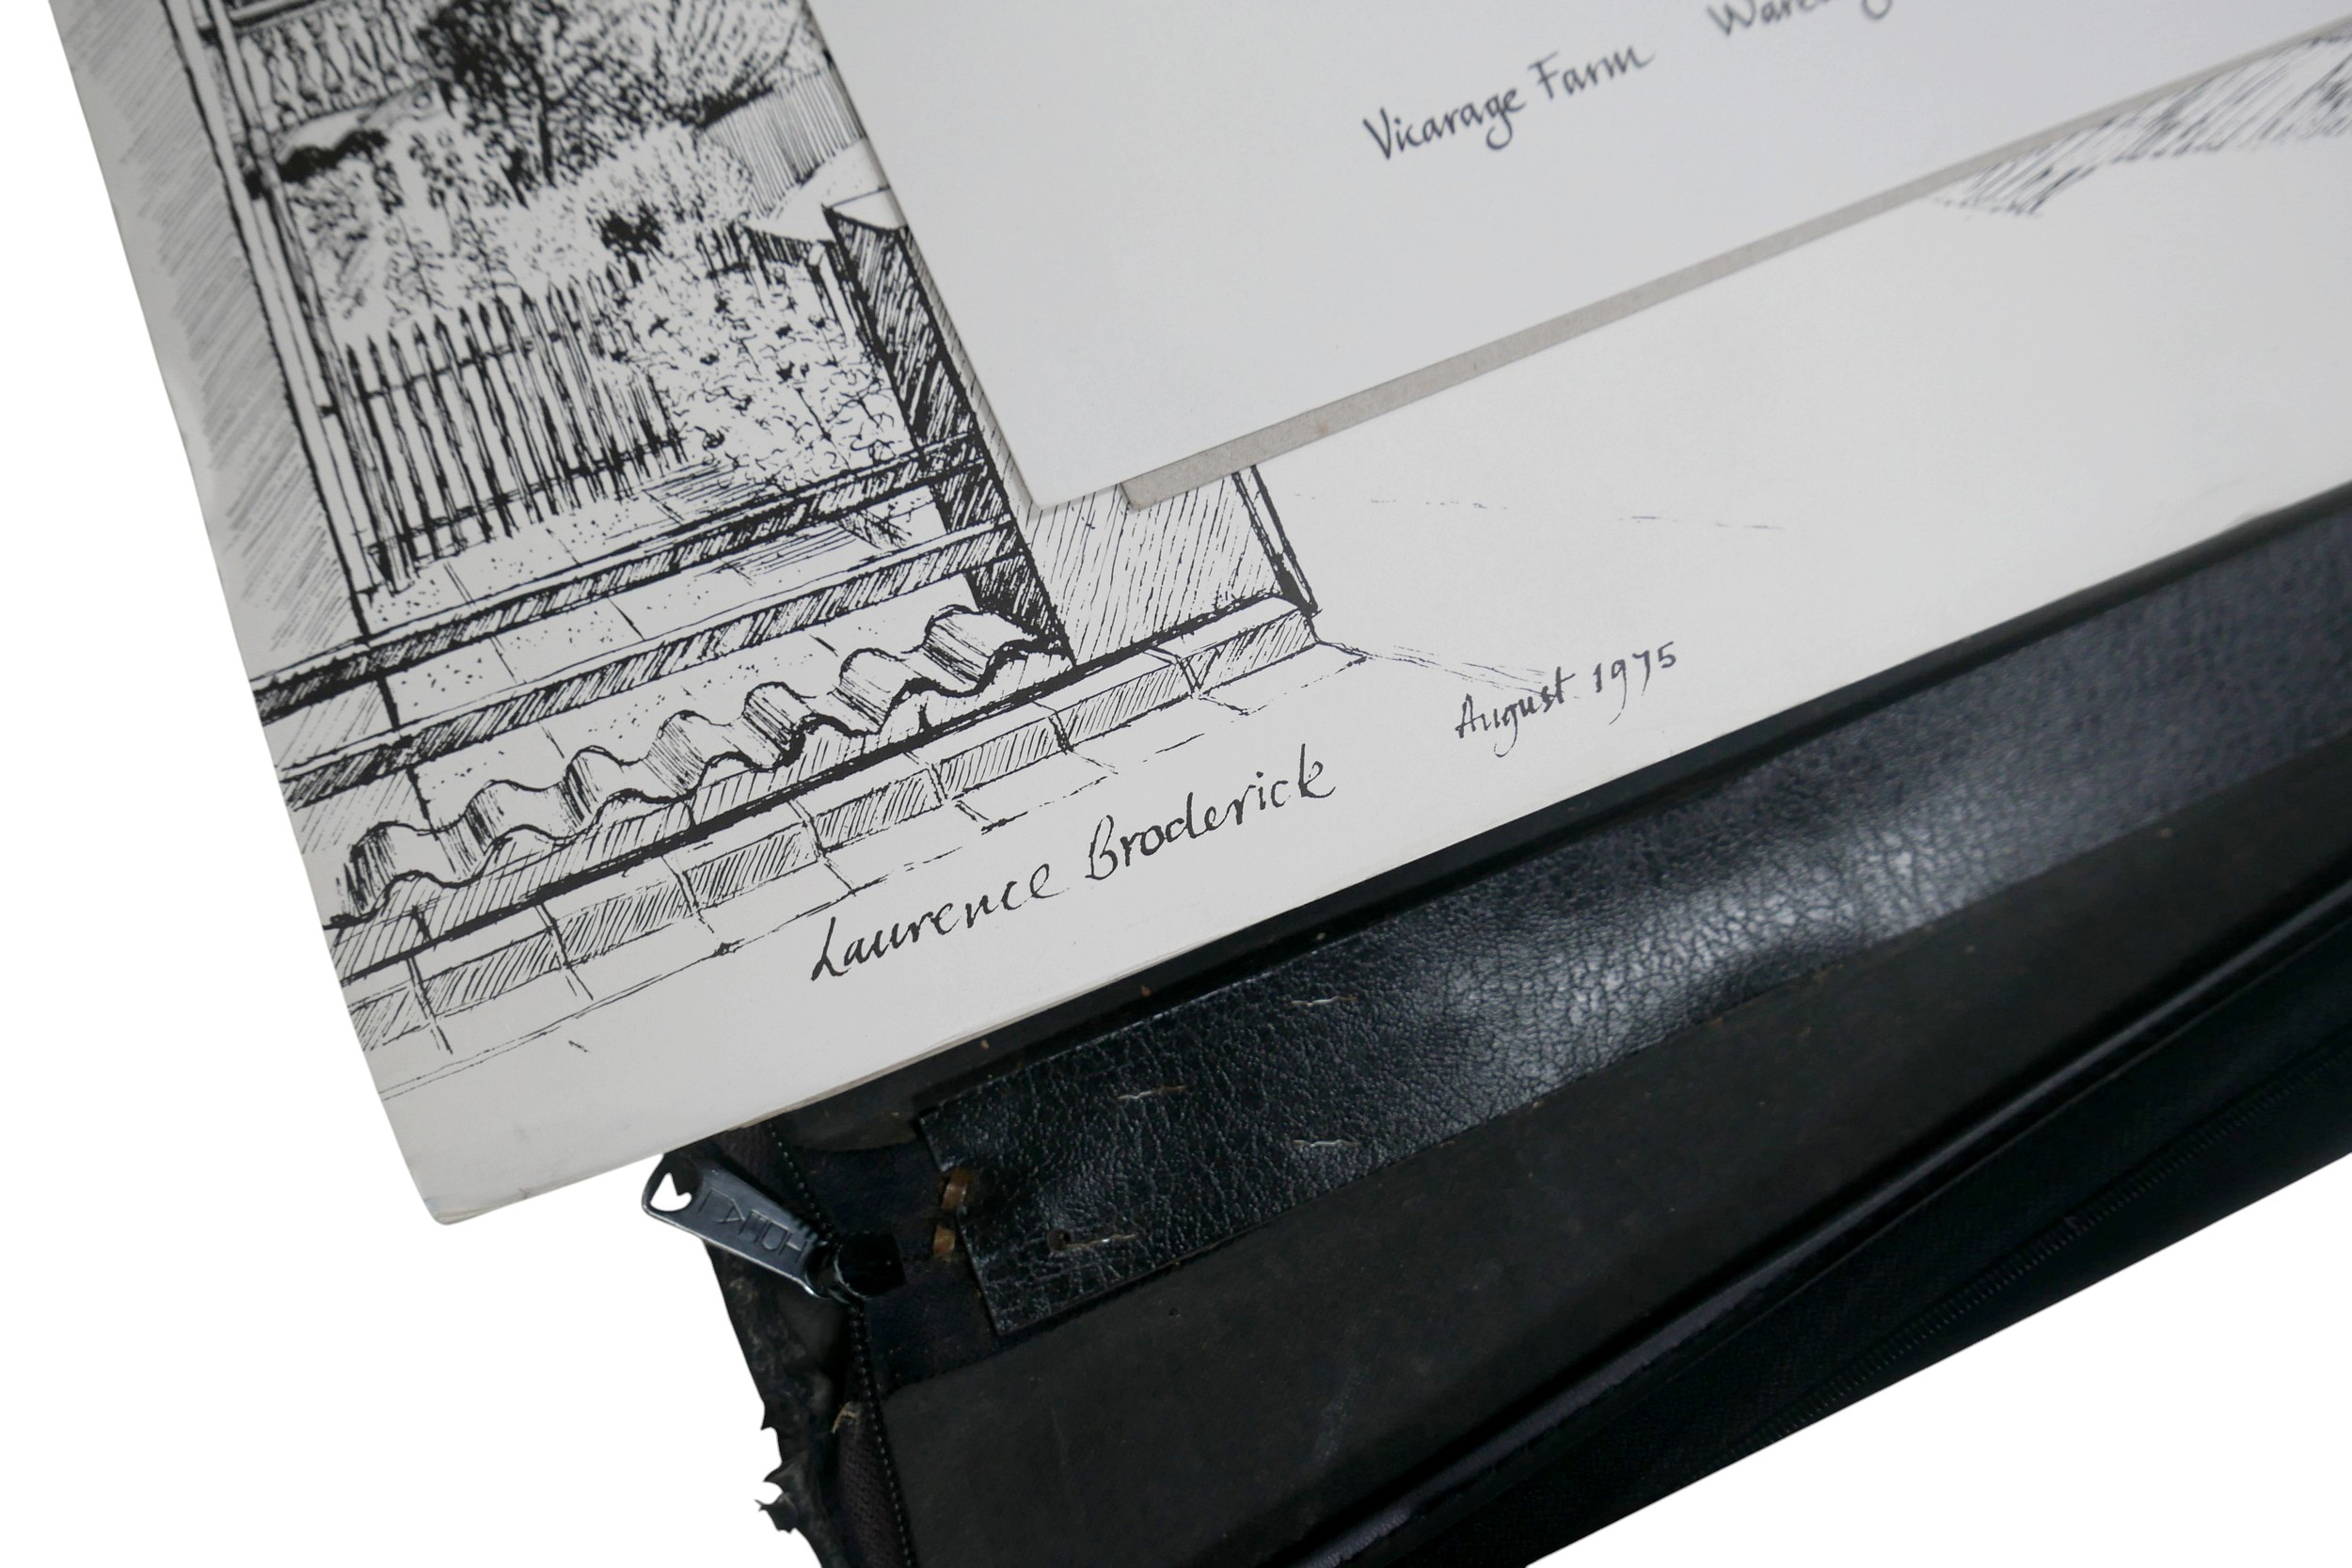 Vicarage Farm
August 1975
Laurence Broderick